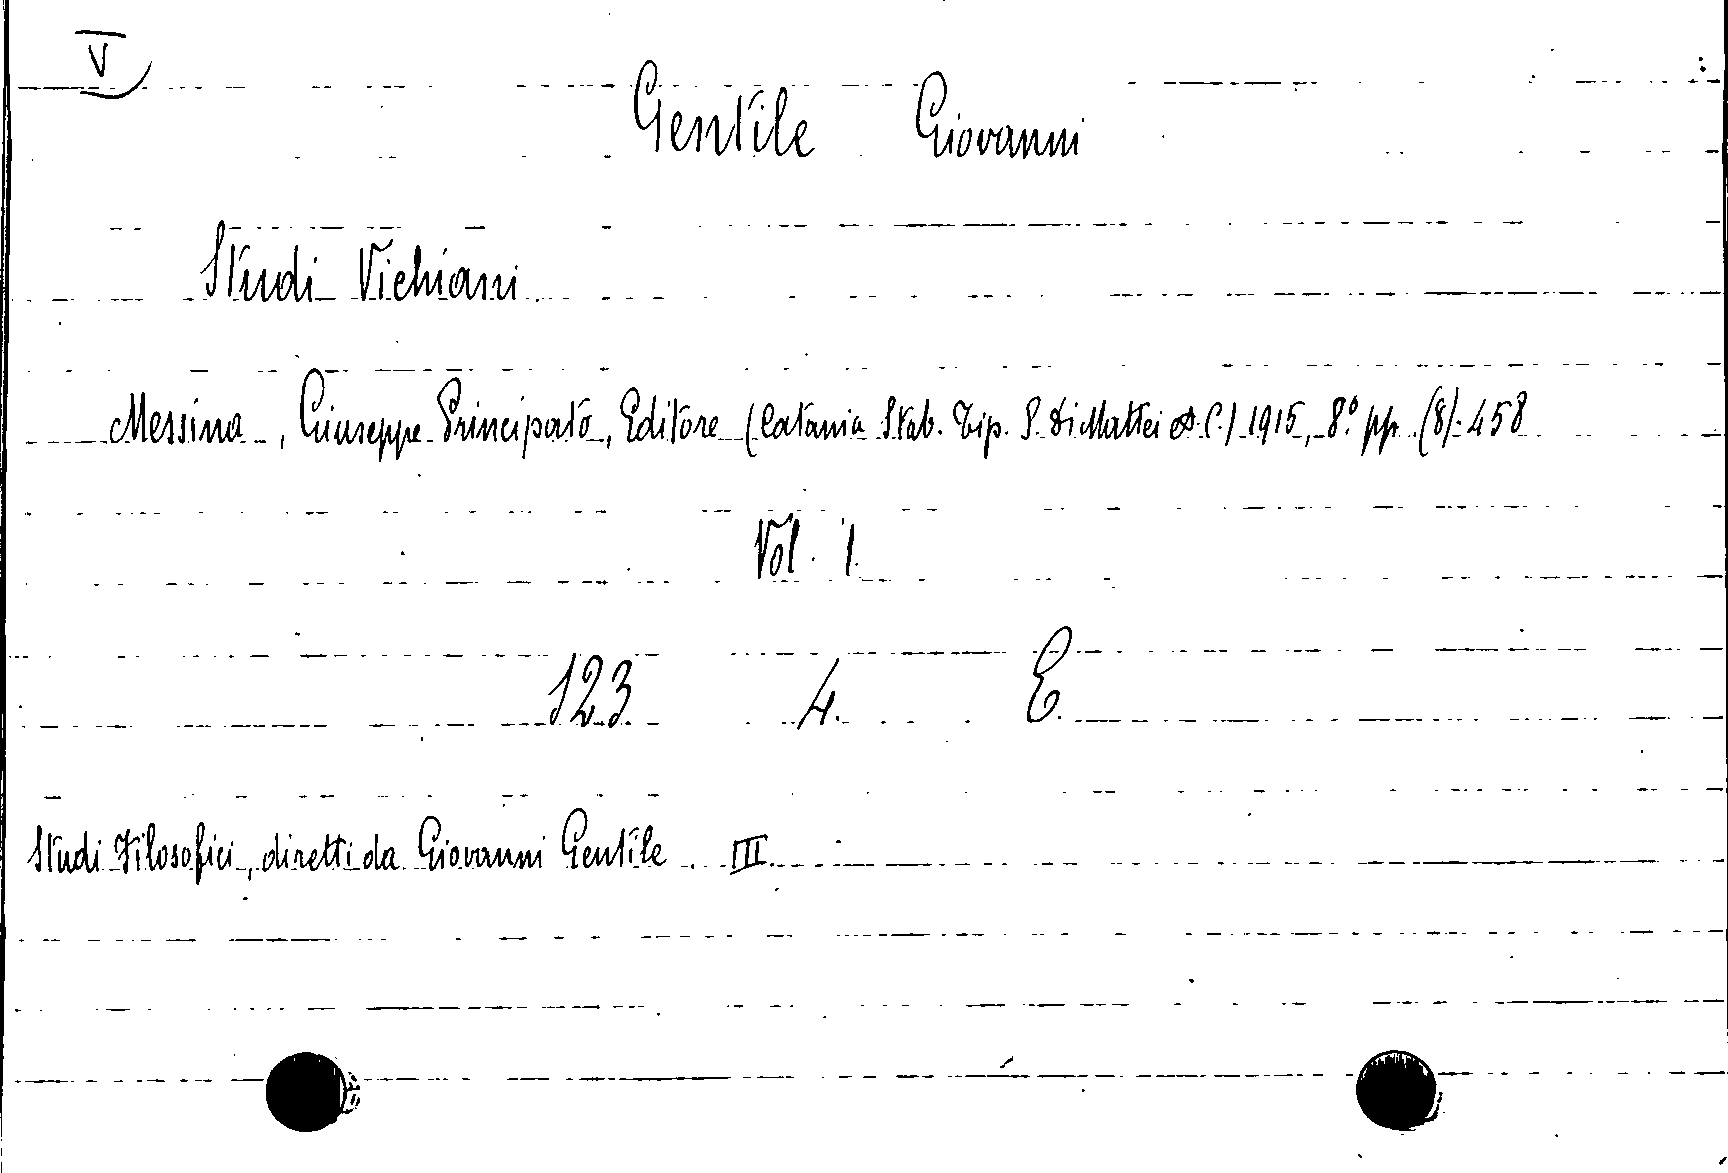 V
Gentile Giovanni
Studi Vichiani
Messina, Giuseppe Principato, Editore (Catania Stab. Tip. S. Di Mattei & C.) 1915, 8º pp. (8)-458
Vol. 1.
123 4. E.
Studi Filosofici, diretti da Giovanni Gentile. III.